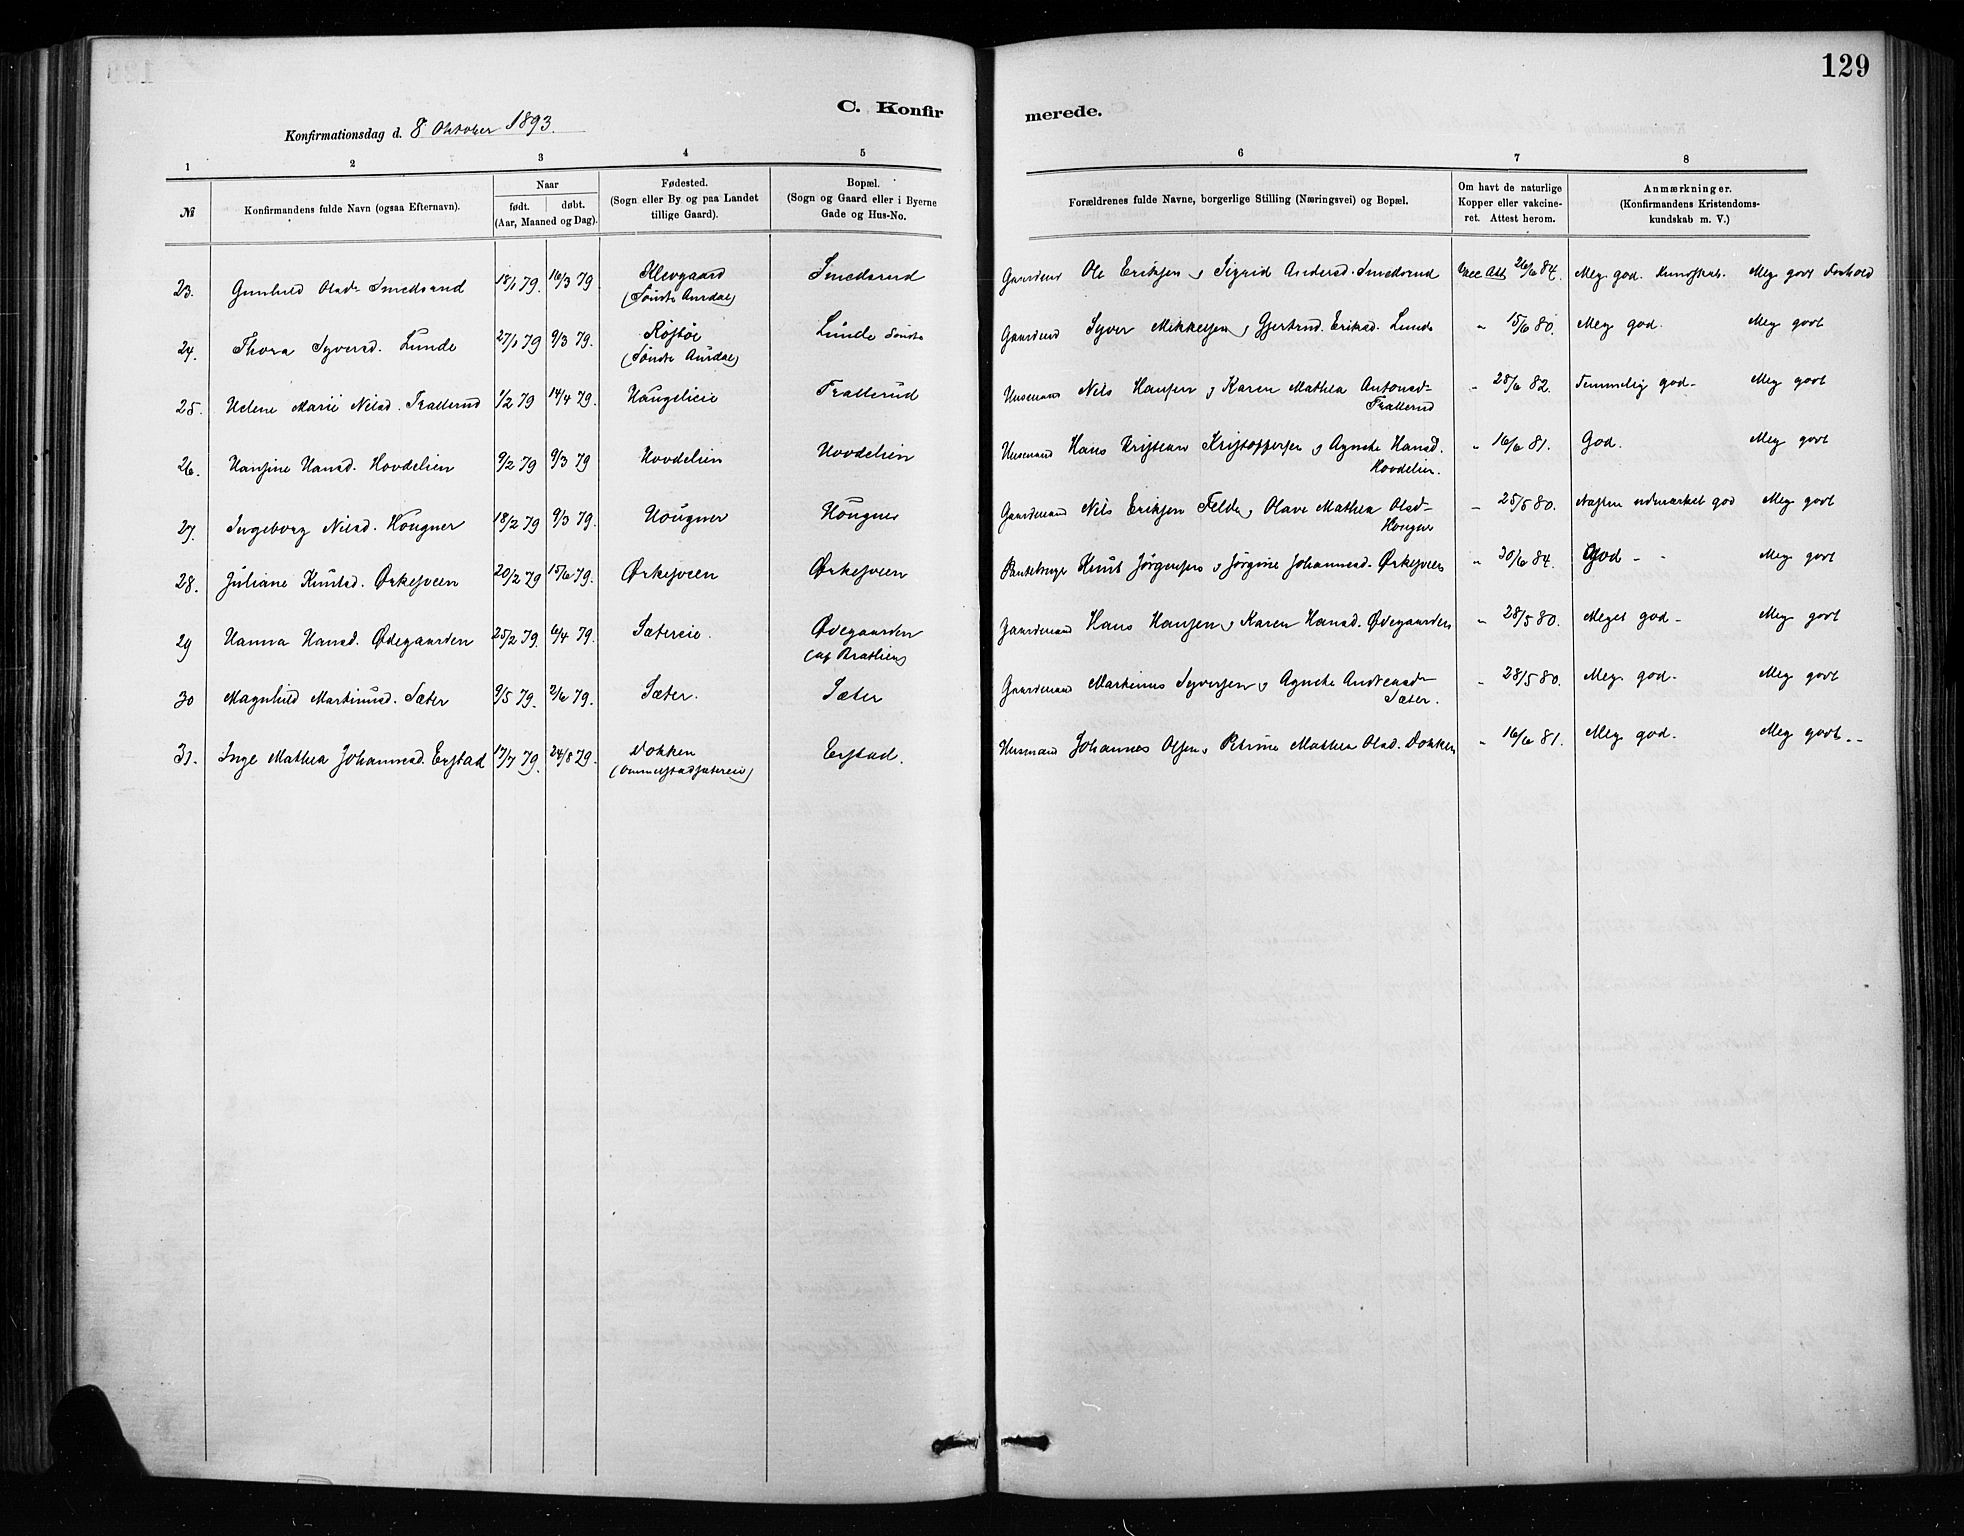 129
C. Konfirmerede.
Konfirmationsdag d. 8 Oktober 1893.
1 2 3 4 5 6 7 8
№ Konfirmandens fulde Navn (ogsaa Efternavn). Naar født. døbt. (Aar, Maaned og Dag). Fødested. (Sogn eller By og paa Landet tillige Gaard). Bopæl. (Sogn og Gaard eller i Byerne Gade og Hus-No. Forældrenes fulde Navne, borgerlige Stilling (Næringsvei) og Bopæl. Om havt de naturlige Kopper eller vakcineret. Attest herom. Anmærkninger. (Konfirmandens Kristendomskundskab m. V.)
23. Gunhild Olsd. Smedsrud 18/1 79. 16/3 79 Klevgaard (Søndre Aurdal) Smedsrud Gaardmd Ole Eriksen o Sigrid Andersd. Smedsrud Vacc Att 26/6 84. Meg. god. Kundskab. Meg godt Forhold
24. Thora Syversd. Lunde 27/1 79 9/3 79. (Søndre Aurdal) Lunde Søndre Gaardmd Syver Mikkelsen o Gjertrud Eriksd. Lunde " 15/6 80. Meg god. Meg godt
25. Helene Marie Nilsd. Trallerud 1/2 79 14/4 79. Haugelieie Trallerud Husmand Nils Hansen o Karen Mathea Antonsd. Trallerud " 28/6 82. Temmelig god. Meg godt
26. Hansine Hansd. Hovdelien 9/2 79 9/3 79 Hovdelien Hovdelien Husmand Hans Kristian Kristoffersen o Agnethe Hansd. Hovdelien. " 16/6 81. God. Meg godt
27. Ingeborg Nilsd. Hougner 18/2 79 9/3 79. Hougner Hougner Gaardmand Nils Eriksen Felde o Olave Mathea Olsd. Hougner " 25/5 80. Næsten udmærket god Meg godt
28. Juliane Knutsd. Ørkesveen 20/2 79 15/6 79. Ørkesveen Ørkesveen Knut Jørgensen o Jørgine Johannesd. Ørkesveen " 30/6 84. God - - Meg godt
29 Hanna Hansd. Ødegaarden 25/2 79. 6/4 79. Sætereie. Ødegaarden (af Bratlien) Gaardmand Hans Hansen o Karen Hansd. Ødegaarden " 28/5 80. Meget god - Meg godt
30 Magnhild Martinusd. Sæter 9/5 79. 2/6 79. Sæter. Sæter Gaardmand Martinus Syversen o Agnethe Andreasd. Sæter. " 28/5 80. Meg god - Meg godt
31. Inge Mathea Johannesd. Erstad 17/7 79. 24/8 79. Dokken Erstad. Husmand Johannes Olsen o Petrine Mathea Olsd. Dokken " 16/6 81. Meg god. Meg godt. -